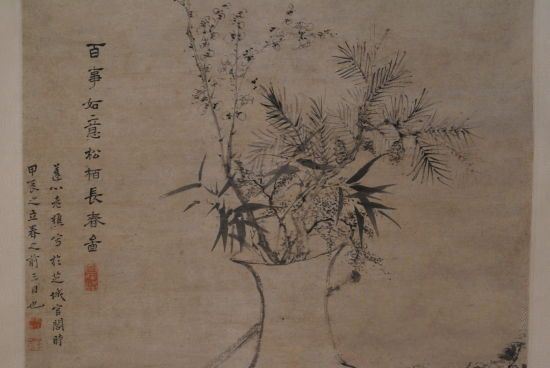 百事如意松柏長春圖
蓬心老樵写於芝城官閣時
甲辰之立春之前三日也